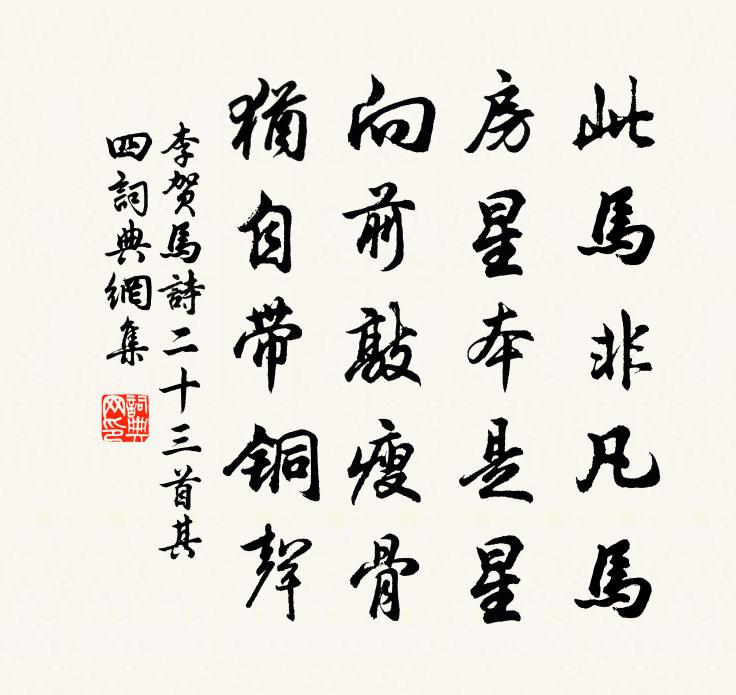 此馬非凡馬
房星本是星
向前敲瘦骨
猶自帶銅聲
李贺馬詩二十三首其
四詞典網集
詞典网印